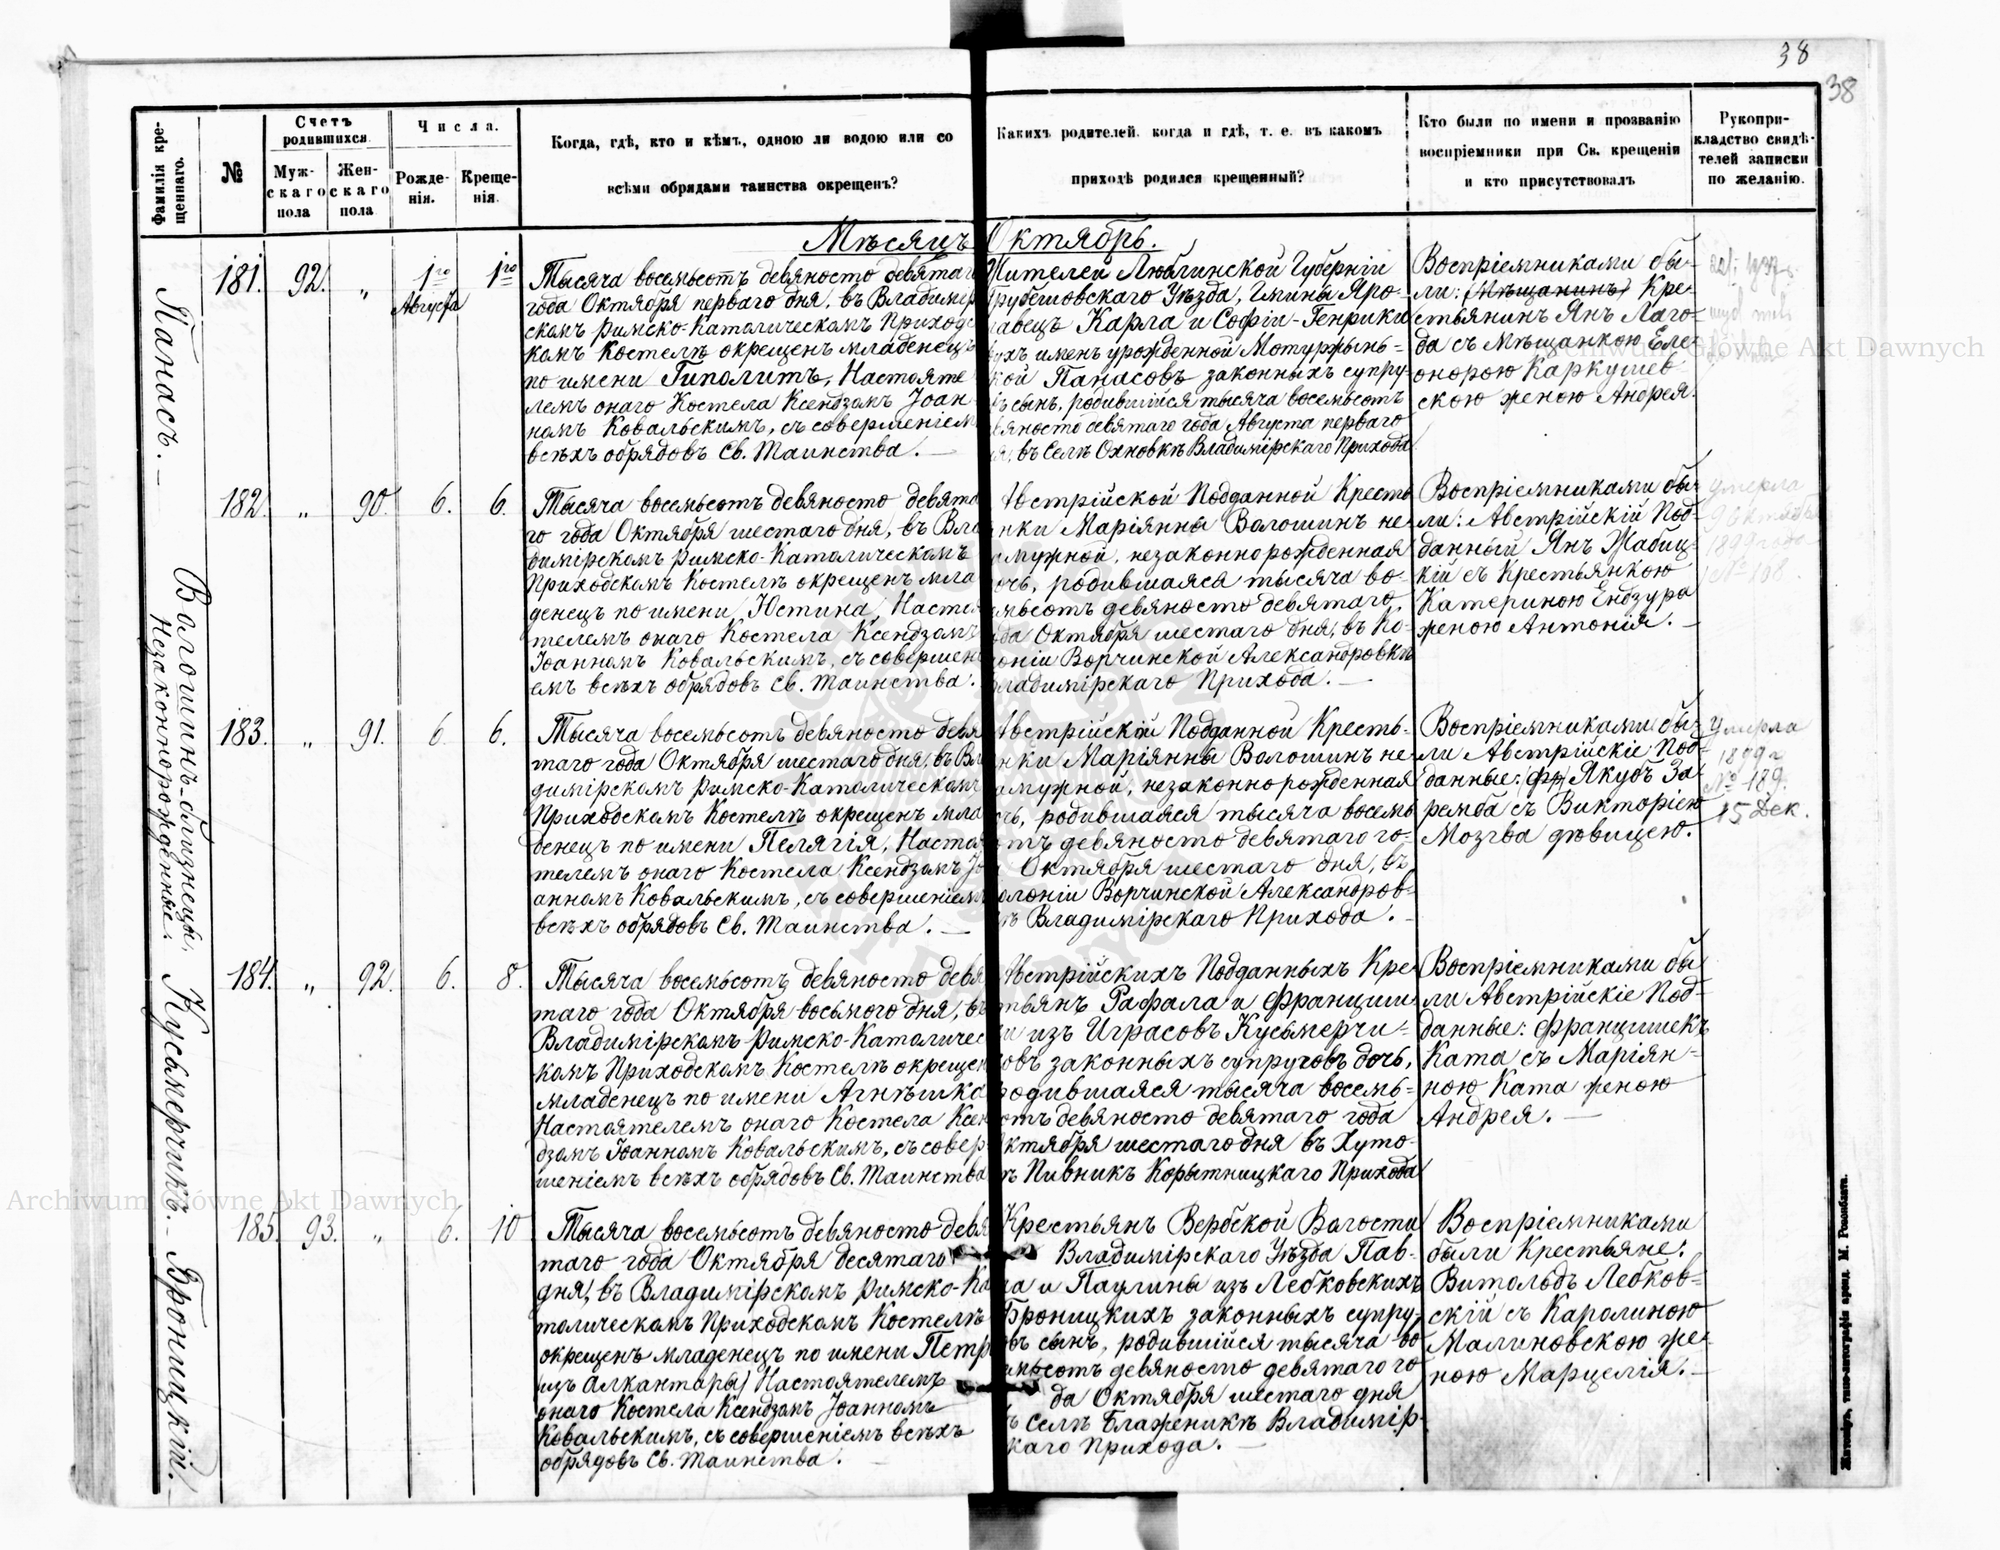 38
38
Фамилія крещеннаго.
№
Счетъ родившихся.
Мужскаго пола
Женскаго пола
Числа.
Рожденія.
Крещенія.
Когда, гдѣ, кто и кѣмъ, одною ли водою или со
всѣми обрядами таинства окрещенъ?
Какихъ родителей. когда и гдѣ, т. е. въ какомъ
приходѣ родился крещенный?
Кто были по имени и прозванію
воспріемники при Св. крещеніи
и кто присутствовалъ
Рукопри-
кладство свидѣ-
телей записки
по желанію.
Мѣсяцъ Октябрь.
Панасъ.
181. 92. „ 1го Августа 1го
Тысяча восемьсотъ девяносто девятаго
года Октября перваго дня, въ Владимір
скомъ Римско-Католическомъ Приходс
комъ Костелѣ окрещенъ младенецъ
по имени Гиполитъ, Настояте
лемъ онаго Костела Ксендзомъ Іоан-
номъ Ковальскимъ, съ совершеніем
всѣхъ обрядовъ Св. Таинства.
Жителей Люблинской Губерніи
Грубешовскаго Уѣзда, Гмины Яро-
лавецъ Карла и Софіи-Генрики
ухъ именъ урожденной Мотуржинь-
кой Панасовъ законныхъ супру
ъ сынъ, родившійся тысяча восемьсотъ
вяносто девятаго года Августа перваго
я, въ Селѣ Охновкѣ Владимірскаго Прихода
Воспріемниками бы-
ли: (Мѣщанинъ) Кре-
стьянинъ Янъ Лаго-
да съ Мѣщанкою Еле-
онорою Каркушев-
скою женою Андрея.
Волошинъ-близнецы,
Незаконнорожденные.
182. „ 90. 6. 6.
Тысяча восемьсотъ девяносто девята
го года Октября шестаго дня, въ Вла
димірскомъ Римско-Католическомъ
Приходскомъ Костелѣ окрещенъ мла
денецъ по имени Юстина, Насто
телемъ онаго Костела Ксендзомъ
Іоанномъ Ковальскимъ, съ совершен
емъ всѣхъ обрядовъ Св. Таинства.
Австрійской Подданной Кресть
янки Маріянны Волошинъ не-
амужной, незаконнорожденная
очь, родившаяся тысяча во-
емьсотъ девяносто девятаго
да Октября шестаго дня, въ Ко-
оніи Ворчинской Александровкѣ
ладимірскаго Прихода.
Воспріемниками бы-
ли: Австрійскій Под-
данный Янъ Жабиц-
кій съ Крестьянкою
Катериною Ендзура
женою Антонія.
Умерла
9 Октября
1899 года
№ 108.
183. „ 91. 6 6.
Тысяча восемьсотъ девяносто девя
таго года Октября шестаго дня, въ Вла
димірскомъ Римско-Католическомъ
Приходскомъ Костелѣ окрещенъ мла
денецъ по имени Пелягія, Настоя
телемъ онаго Костела Ксендзомъ Іо
анномъ Ковальскимъ, съ совершеніемъ
всѣхъ обрядовъ Св. Таинства.
Австрійской Подданной Кресть-
янки Маріянны Волошинъ не-
амужной, незаконнорожденная
чь, родившаяся тысяча восемь
отъ девяносто девятаго го-
Октября шестаго дня, въ
олоніи Ворчинской Александров-
ѣ Владимірскаго Прихода.
Воспріемниками бы-
ли Австрійскіе Под-
данные: (фр) Якубъ За-
ремба съ Викторіею
Мозгва дѣвицею.
Умерла
1899 г
№ 189.
15 Дек.
Кусьмерчикъ.
184. „ 92. 6. 8.
Тысяча восемьсотъ девяносто девя
таго года Октября восьмого дня, въ
Владимірскомъ Римско-Католичес
комъ Приходскомъ Костелѣ окрещен
младенецъ по имени Агнѣшка
Настоятелемъ онаго Костела Ксен
дзомъ Іоанномъ Ковальскимъ, съ совер-
шеніемъ всѣхъ обрядовъ Св. Таинства
Австрійскихъ Подданныхъ Кре-
тьянъ Рафала и Францишк
и изъ Играсовъ Кусьмерчи-
овъ законныхъ супруговъ дочь,
родившаяся тысяча восемь-
отъ девяносто девятаго года
Октября шестаго дня въ Хуто-
ѣ Пивникъ Корытницкаго Прихода
Воспріемниками бы
ли Австрійскіе Под-
данные: Францишекъ
Ката съ Маріян-
ною Ката женою
Андрея.
Броницкій.
185. 93. „ 6. 10
Тысяча восемьсотъ девяносто девя
таго года Октября десятаго
дня, въ Владимірскомъ Римско-Ка
толическомъ Приходскомъ Костелѣ
окрещенъ младенецъ по имени Петр
(изъ Алкантары) Настоятелемъ
онаго Костела Ксендзомъ Іоанномъ
Ковальскимъ, съ совершеніемъ всѣхъ
обрядовъ Св. Таинства.
Крестьянъ Вербской Волости
Владимірскаго Уѣзда Пав-
ла и Паулины изъ Лебковскихъ
Броницкихъ законныхъ супру-
овъ сынъ, родившійся тысяча во
емьсотъ девяносто девятаго го
да Октября шестаго дня
ъ Селѣ Блаженикѣ Владимір-
каго Прихода.
Воспріемниками
были Крестьяне:
Витольдъ Лебков-
скій съ Каролиною
Малиновскою же-
ною Марцелія.
Житомір, типо-литографія аренд. М. Розенблата.
Archiwum Główne Akt Dawnych
Archiwum Główne Akt Dawnych